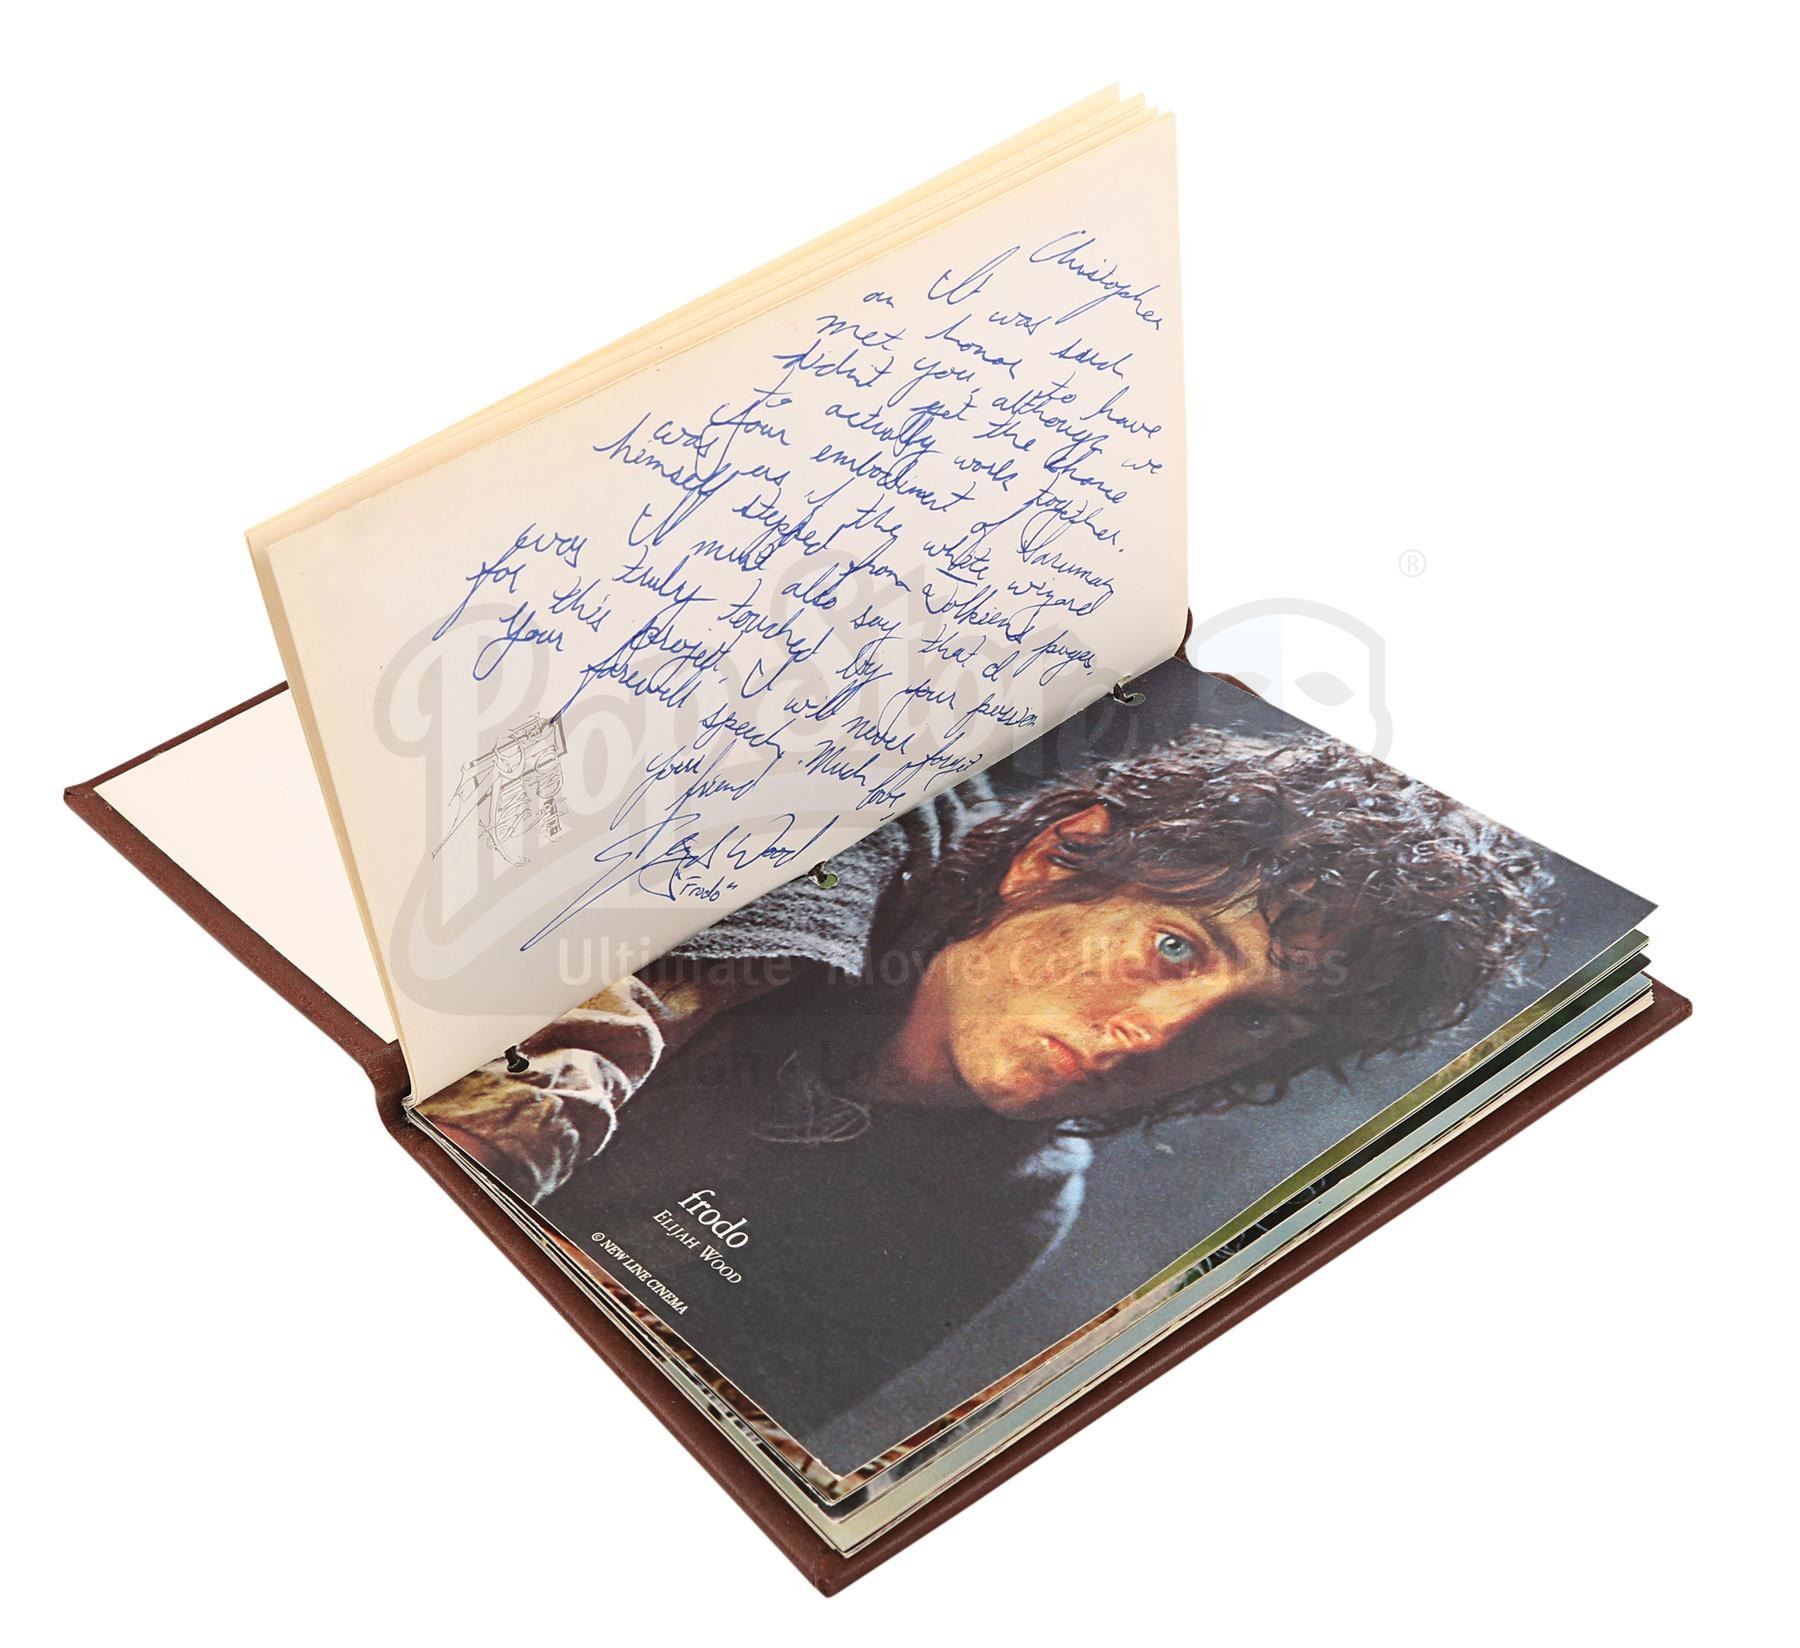 Christopher
It was such
an honor to have
met you, although we
didn't get the chance
to actually work together.
Your embodiment of Saruman
was as if the white wizard
himself stepped from Tolkiens pages.
I must also say that I
was truly touched by your passion
for this project. I will never forget
your farewell speech. Much love
your
friend
Wood
"Frodo"
THE LORD OF THE RINGS
frodo
ELIJAH WOOD
© NEW LINE CINEMA
PropStore
®
Ultimate Movie Collectables